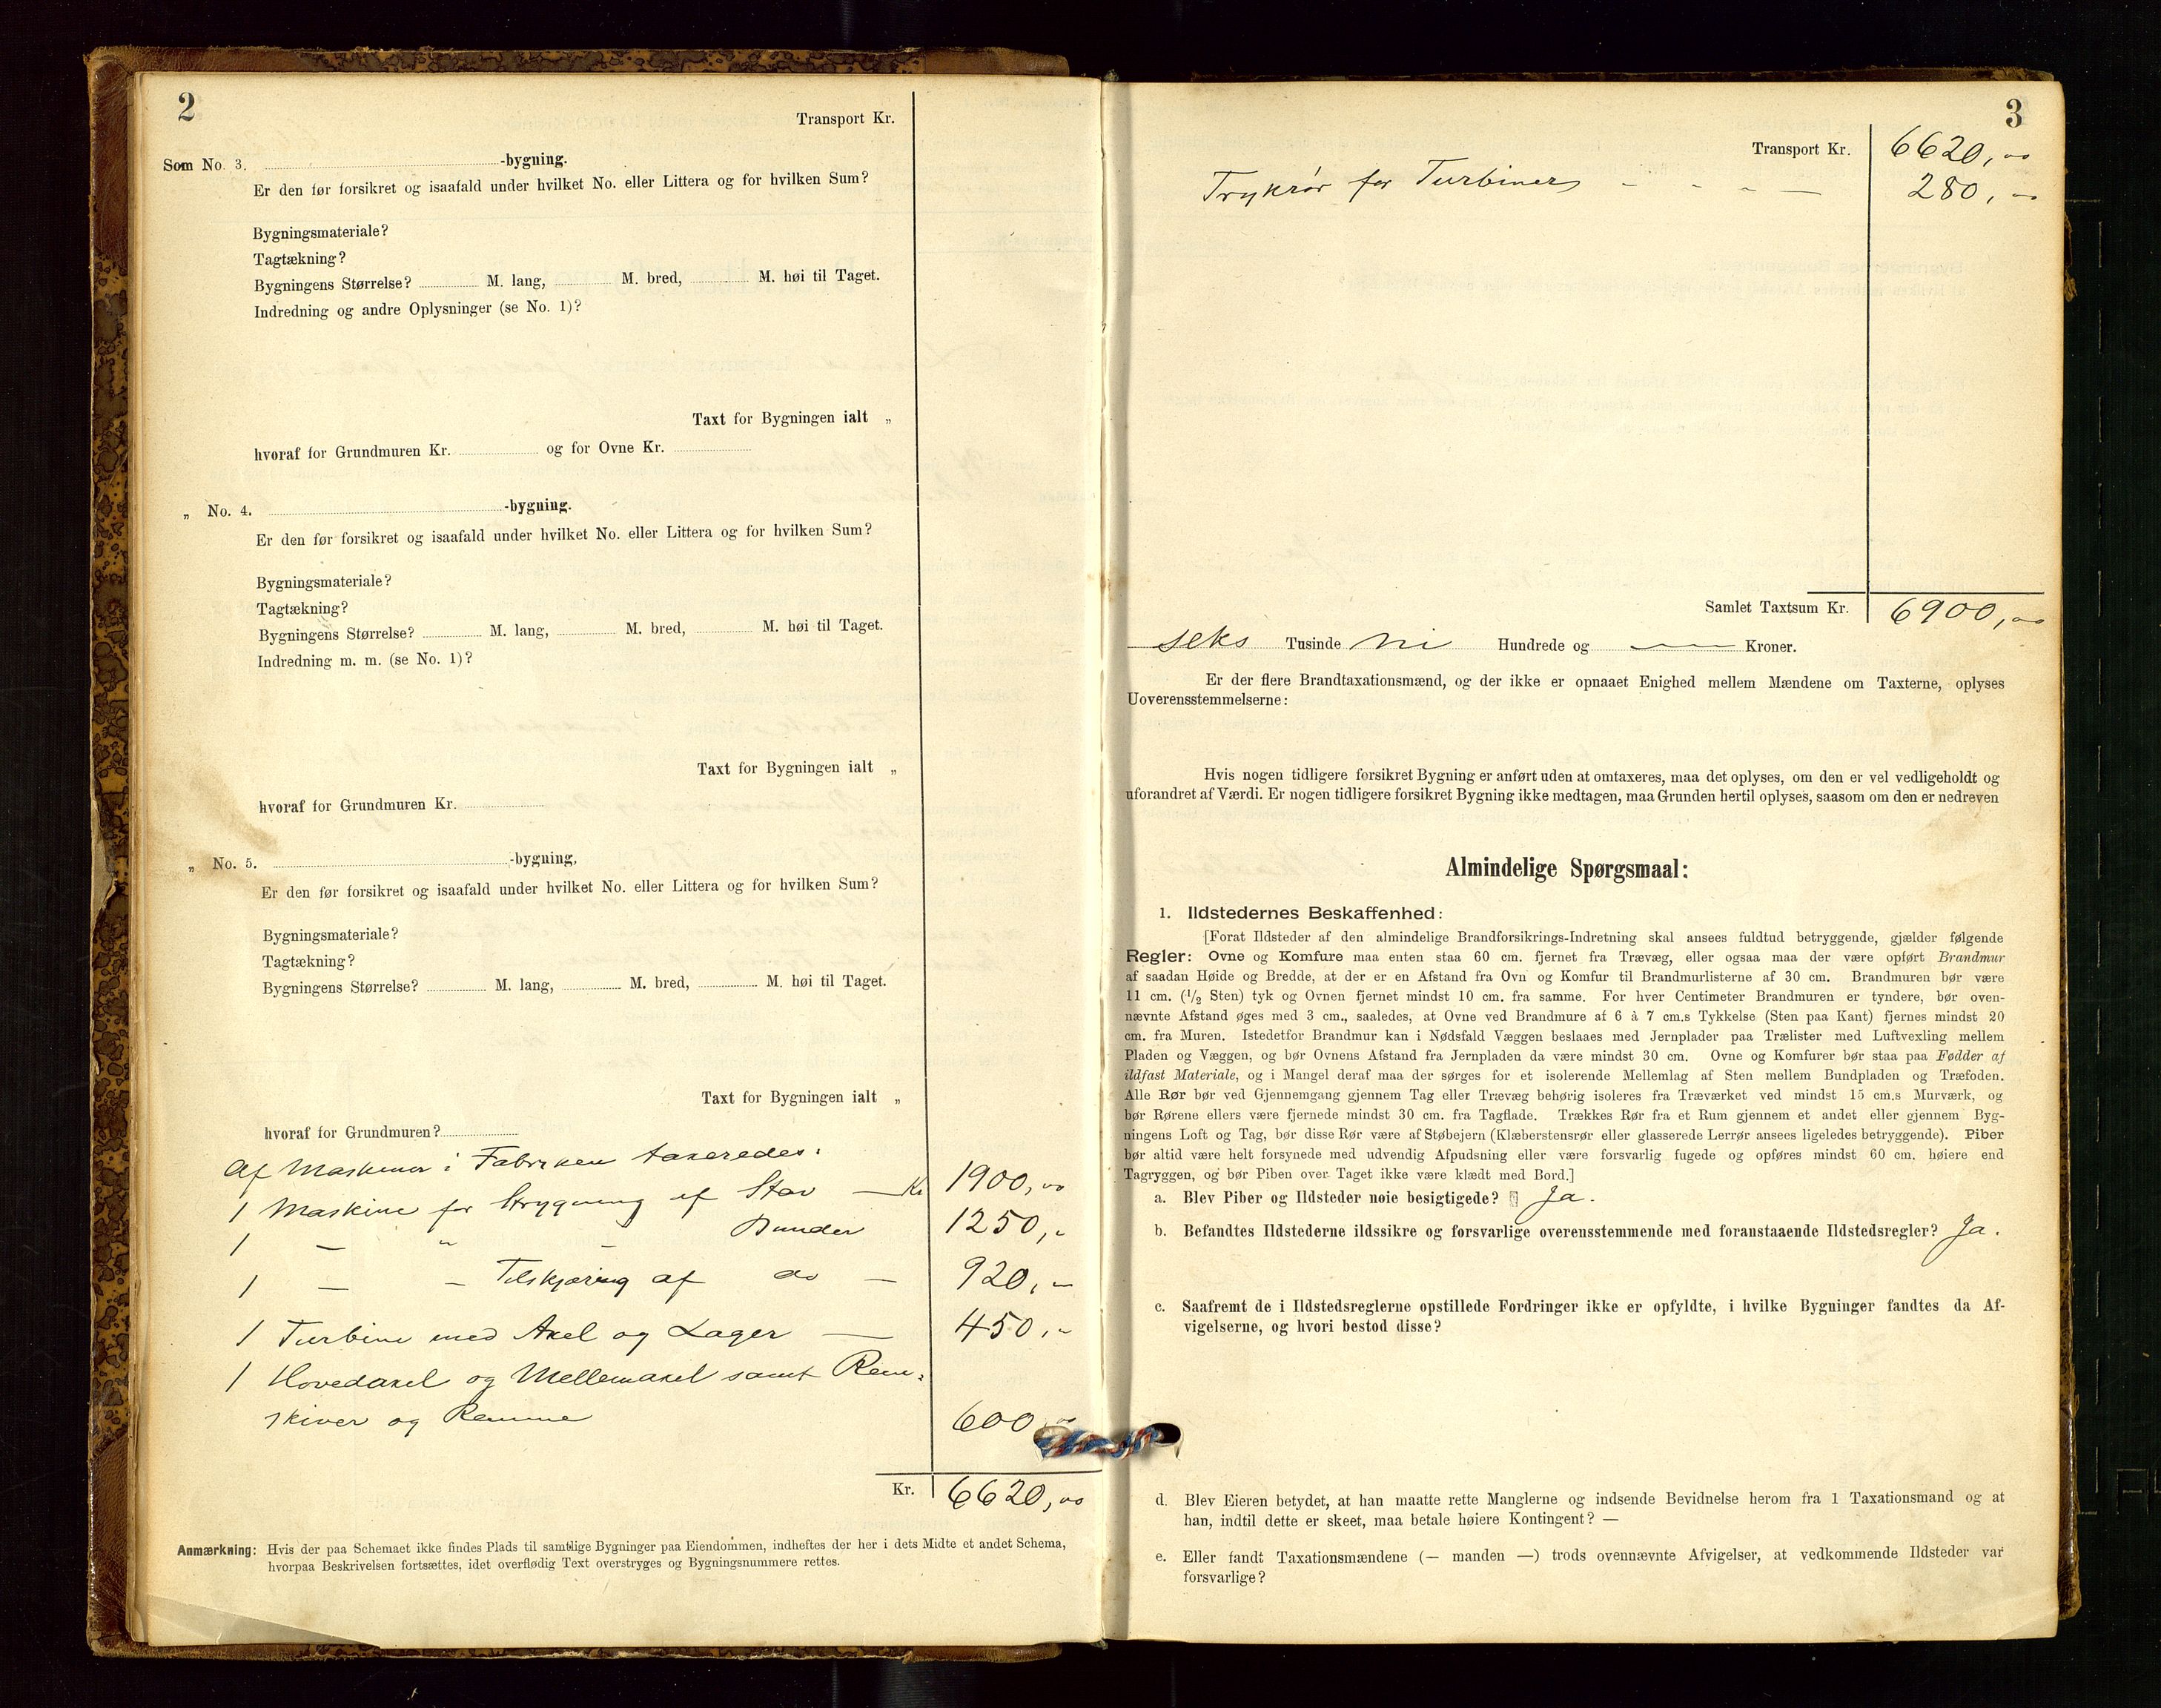 2
Transport Kr.
Som No. 3. -bygning.
Er den før forsikret og isaafald under hvilket No. eller Littera og for hvilken Sum?
Bygningsmateriale?
Tagtækning?
Bygningens Størrelse? M. lang, M. bred, M. høi til Taget.
Indredning og andre Oplysninger (se No. 1)?
Taxt for Bygningen ialt „
hvoraf for Grundmuren Kr. og for Ovne Kr.
„ No. 4. -bygning.
Er den før forsikret og isaafald under hvilket No. eller Littera og for hvilken Sum?
Bygningsmateriale?
Tagtækning?
Bygningens Størrelse? M. lang, M. bred, M. høi til Taget.
Indredning m. m. (se No. 1)?
Taxt for Bygningen ialt „
hvoraf for Grundmuren Kr.
„ No. 5. -bygning,
Er den før forsikret og isaafald under hvilket No. eller Littera og for hvilken Sum?
Bygningsmateriale?
Tagtækning?
Bygningens Størrelse? M. lang, M. bred, M. høi til Taget.
Taxt for Bygningen ialt „
hvoraf for Grundmuren?
Af Maskiner i Fabriken taxeredes:
1 Maskine for Strygning af Stav — Kr 1900,00
1 — „ — Bunder 1250,-
1 — — Tilskjæring af do — 920,-
1 Turbine med Axel og Lager — 450,-
1 Hovedaxel og Mellemaxel samt Rem-
skiver og Remme 600,00
Kr. 6620,00
Anmærkning: Hvis der paa Schemaet ikke findes Plads til samtlige Bygninger paa Eiendommen, indheftes der her i dets Midte et andet Schema,
hvorpaa Beskrivelsen fortsættes, idet overflødig Text overstryges og Bygningsnummere rettes.
3
Transport Kr. 6620,00
Trykrør for Turbinen - - - — 280,00
Samlet Taxtsum Kr. 6900,00
seks Tusinde ni Hundrede og — Kroner.
Er der flere Brandtaxationsmænd, og der ikke er opnaaet Enighed mellem Mændene om Taxterne, oplyses
Uoverensstemmelserne:
Hvis nogen tidligere forsikret Bygning er anført uden at omtaxeres, maa det oplyses, om den er vel vedligeholdt og
uforandret af Værdi. Er nogen tidligere forsikret Bygning ikke medtagen, maa Grunden hertil oplyses, saasom om den er nedreven
Almindelige Spørgsmaal:
1. Ildstedernes Beskaffenhed:
[Forat Ildsteder af den almindelige Brandforsikrings-Indretning skal ansees fuldtud betryggende, gjælder følgende
Regler: Ovne og Komfure maa enten staa 60 cm. fjernet fra Trævæg, eller ogsaa maa der være opført Brandmur
af saadan Høide og Bredde, at der er en Afstand fra Ovn og Komfur til Brandmurlisterne af 30 cm. Brandmuren bør være
11 cm. (1/2 Sten) tyk og Ovnen fjernet mindst 10 cm. fra samme. For hver Centimeter Brandmuren er tyndere, bør oven-
nævnte Afstand øges med 3 cm., saaledes, at Ovne ved Brandmure af 6 à 7 cm.s Tykkelse (Sten paa Kant) fjernes mindst 20
cm. fra Muren. Istedetfor Brandmur kan i Nødsfald Væggen beslaaes med Jernplader paa Trælister med Luftvexling mellem
Pladen og Væggen, og bør Ovnens Afstand fra Jernpladen da være mindst 30 cm. Ovne og Komfurer bør staa paa Fødder af
ildfast Materiale, og i Mangel deraf maa der sørges for et isolerende Mellemlag af Sten mellem Bundpladen og Træfoden.
Alle Rør bør ved Gjennemgang gjennem Tag eller Trævæg behørig isoleres fra Træværket ved mindst 15 cm.s Murværk, og
bør Rørene ellers være fjernede mindst 30 cm. fra Tagflade. Trækkes Rør fra et Rum gjennem et andet eller gjennem Byg-
ningens Loft og Tag, bør disse Rør være af Støbejern (Klæberstensrør eller glasserede Lerrør ansees ligeledes betryggende). Piber
bør altid være helt forsynede med udvendig Afpudsning eller være forsvarlig fugede og opføres mindst 60 cm. høiere end
Tagryggen, og bør Piben over Taget ikke være klædt med Bord.]
a. Blev Piber og Ildsteder nøie besigtigede? Ja.
b. Befandtes Ildstederne ildssikre og forsvarlige overensstemmende med foranstaaende Ildstedsregler? Ja.
c. Saafremt de i Ildstedsreglerne opstillede Fordringer ikke er opfyldte, i hvilke Bygninger fandtes da Af-
vigelserne, og hvori bestod disse?
d. Blev Eieren betydet, at han maatte rette Manglerne og indsende Bevidnelse herom fra 1 Taxationsmand og at
han, indtil dette er skeet, maa betale høiere Kontingent? —
e. Eller fandt Taxationsmændene (— manden —) trods ovennævnte Afvigelser, at vedkommende Ildsteder var
forsvarlige?